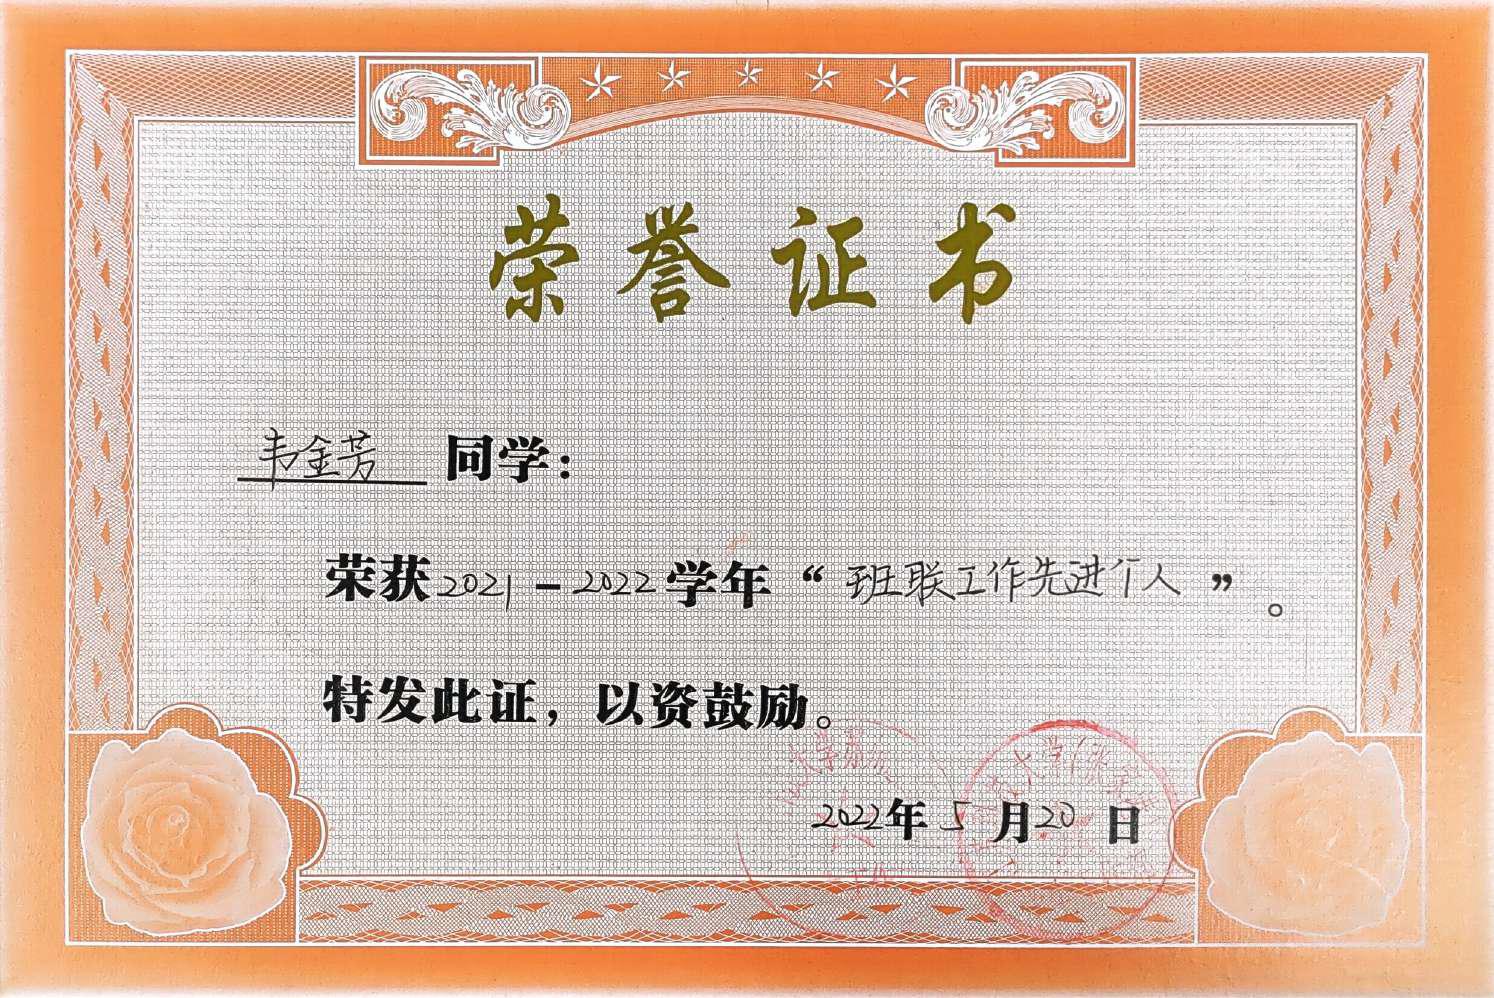 荣誉证书
韦金芳 同学：
荣获2021－2022学年“班联工作先进个人”。
特发此证，以资鼓励。
2022年5月20日